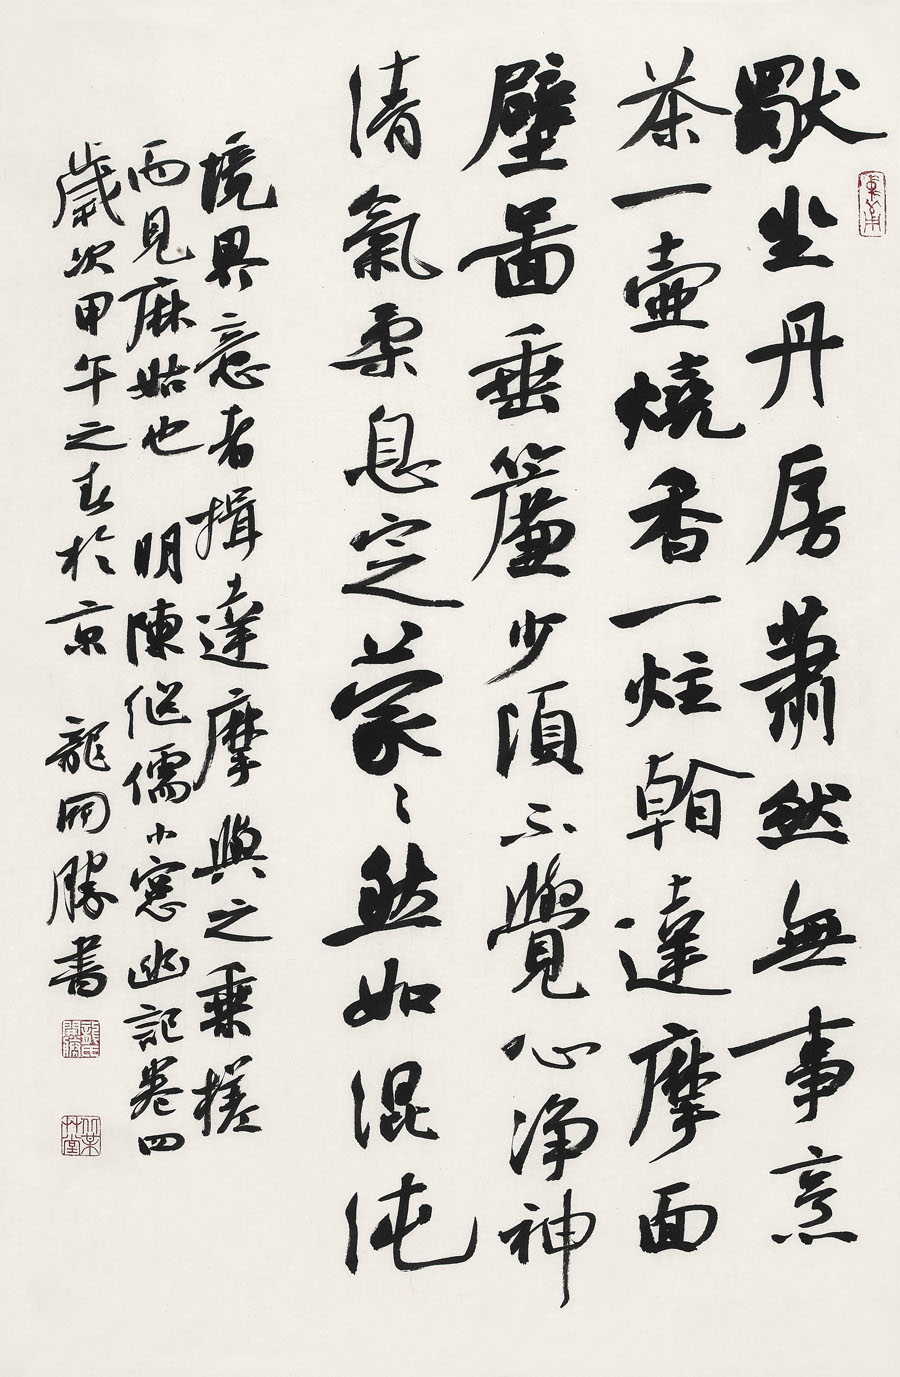 獨坐丹房蕭然無事烹
茶一壺燒香一炷看達摩面
壁啚垂簾少頃不覺心淨神
清氣柔息定蒙〻然如混沌
境界意者揖達摩與之乘槎
而見麻姑也 明陳继儒小窓幽記卷四
歲次甲午之春於京 龍開勝書